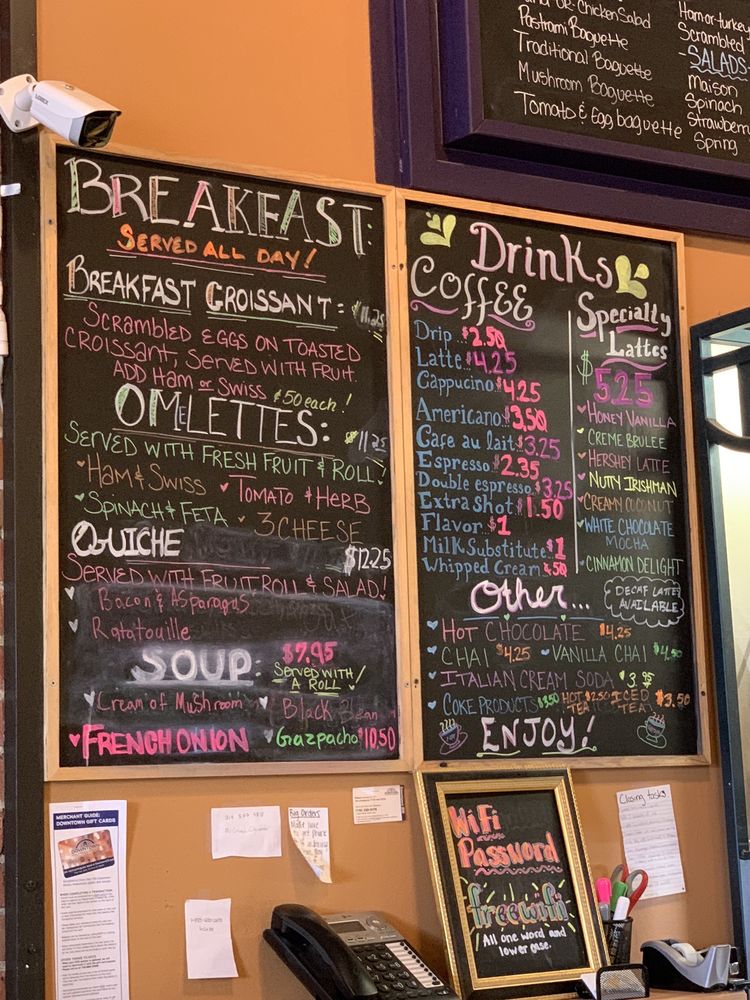 Chicken Salad
Pastrami Baguette
Traditional Baguette
Mushroom Baguette
Tomato & Egg baguette
Ham or turkey
Scrambled
-SALADS-
Maison
Spinach
Strawberry
Spring
LOREX
BREAKFAST:
SERVED ALL DAY!
BREAKFAST CROISSANT: $11.25
SCRAMBLED EGGS ON TOASTED
CROISSANT, SERVED WITH FRUIT.
ADD HAM or SWISS $.50 each!
OMELETTES: $11.25
SERVED WITH FRESH FRUIT & ROLL
HAM & SWISS TOMATO & HERB
SPINACH & FETA 3 CHEESE
QUICHE $12.25
SERVED WITH FRUIT, ROLL & SALAD!
Bacon & Asparagus
Ratatouille
SOUP: $7.95
SERVED W/
A ROLL
Cream of Mushroom Black Bean
FRENCH ONION Gazpacho $10.50
Drinks
COFFEE
Drip..$2.50
Latte..$4.25
Cappucino $4.25
Americano..$3.50
Cafe au lait $3.25
Espresso $2.35
Double espresso $3.25
Extra Shot $1.50
Flavor..$1
Milk Substitute..$1
Whipped Cream .50
Specialty
Lattes
$5.25
HONEY VANILLA
CREME BRULEE
HERSHEY LATTE
NUTTY IRISHMAN
CREAMY COCONUT
WHITE CHOCOLATE
MOCHA
CINNAMON DELIGHT
DECAF LATTES
AVAILABLE
Other...
HOT CHOCOLATE $4.25
CHAI $4.25 VANILLA CHAI
ITALIAN CREAM SODA $3.95
COKE PRODUCTS HOT TEA $2.50 ICED TEA $3.50
ENJOY!
MERCHANT GUIDE:
DOWNTOWN GIFT CARDS
Big Orders
Closing tasks
WiFi
Password
freewifi
All one word and
lower case.